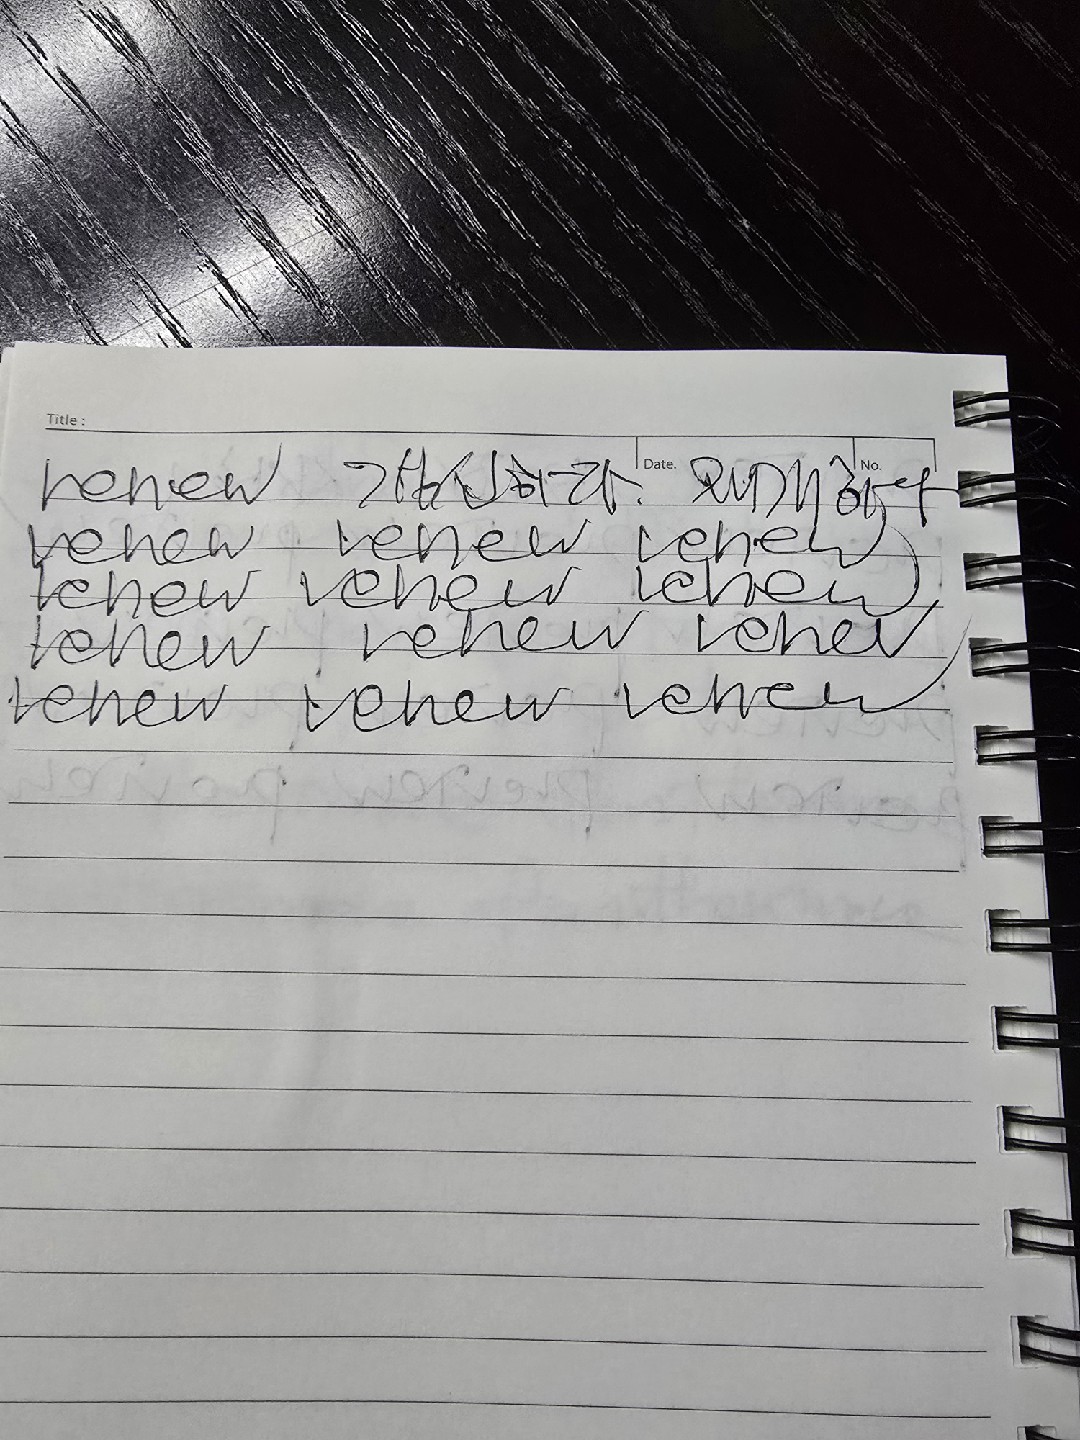 Title :
Date. No.
renew 갱신하다. 재개하다
renew renew renew
renew renew renew
renew renew renew
renew renew renew